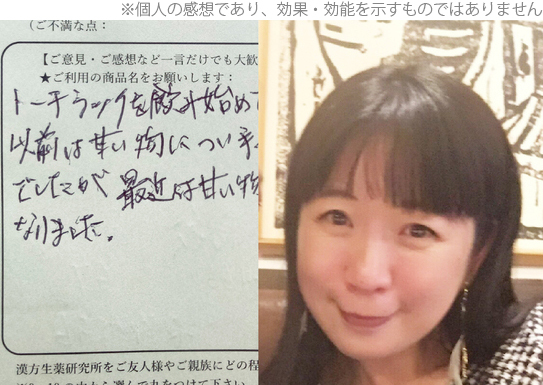 ※個人の感想であり、効果・効能を示すものではありません
（ご不満な点：
【ご意見・ご感想など一言だけでも大歓
★ご利用の商品名をお願いします：
トーチラックを飲み始めて
以前は甘い物につい手
でしたが 最近は甘い物
なりました。
漢方生薬研究所をご友人様やご親族にどの程